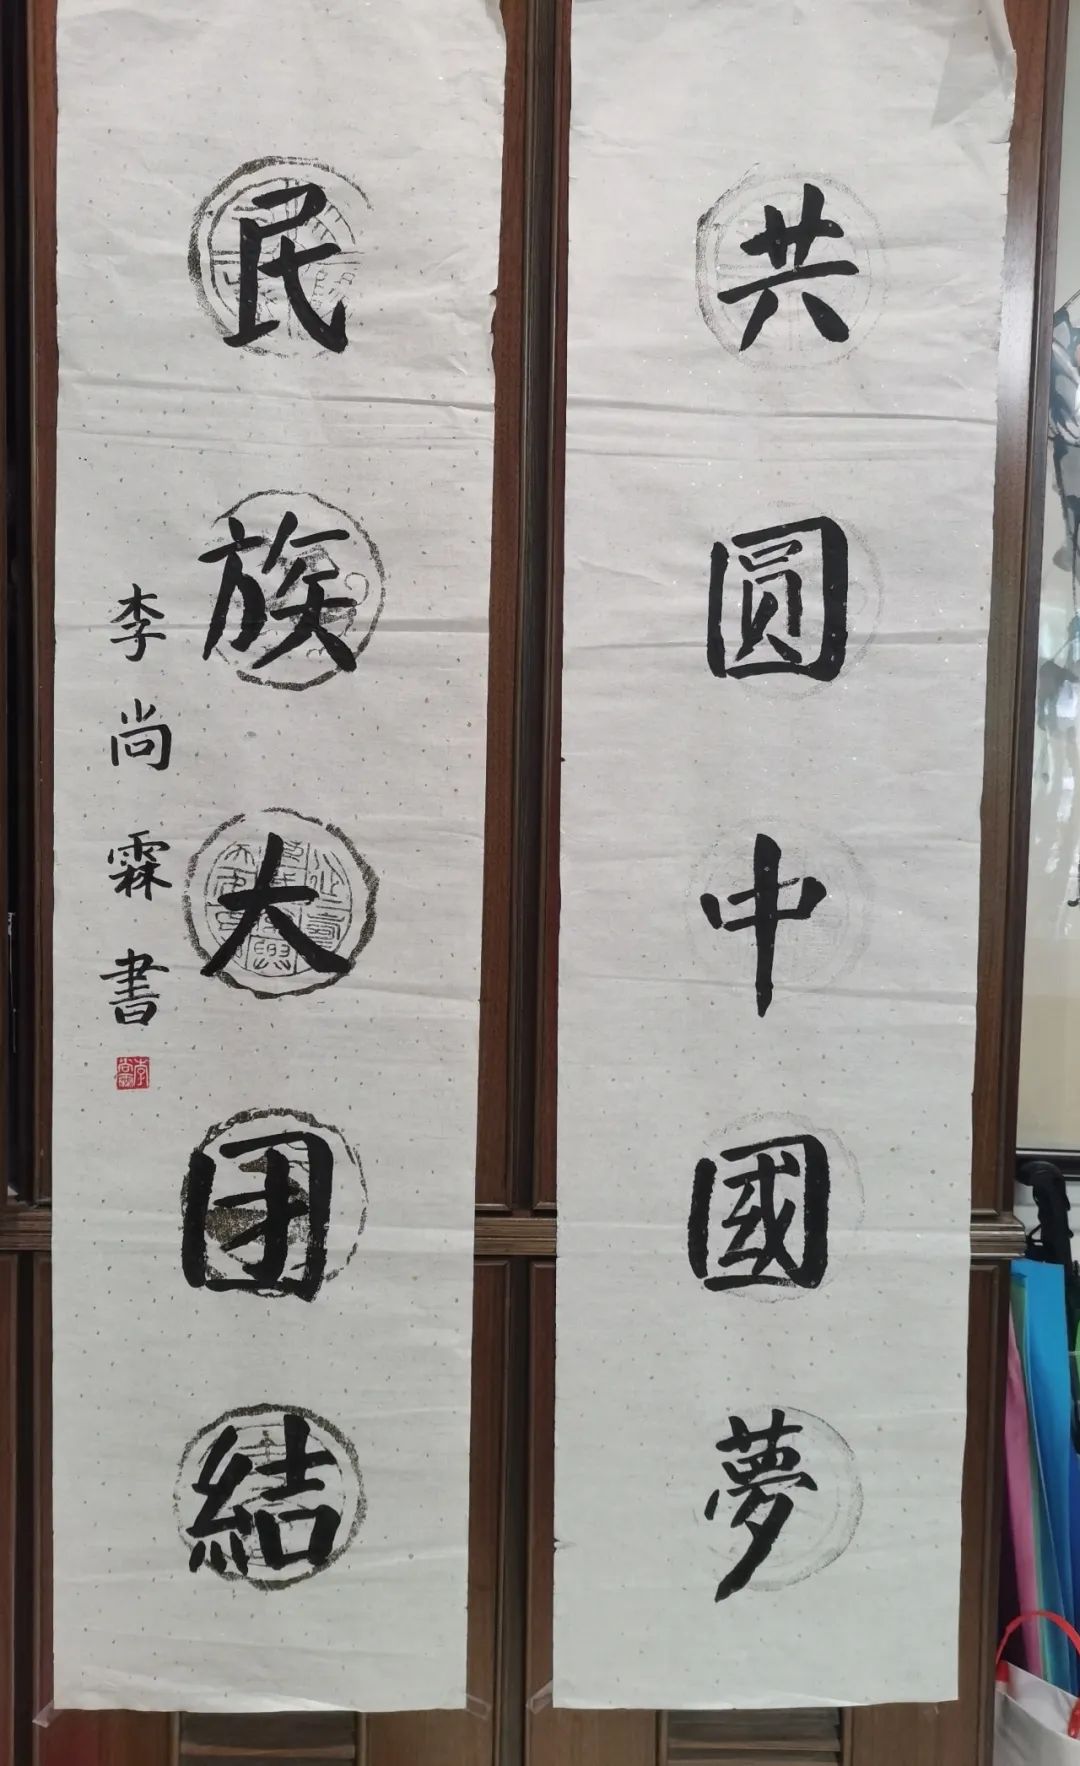 共圓中國夢
民族大团結
李尚霖書